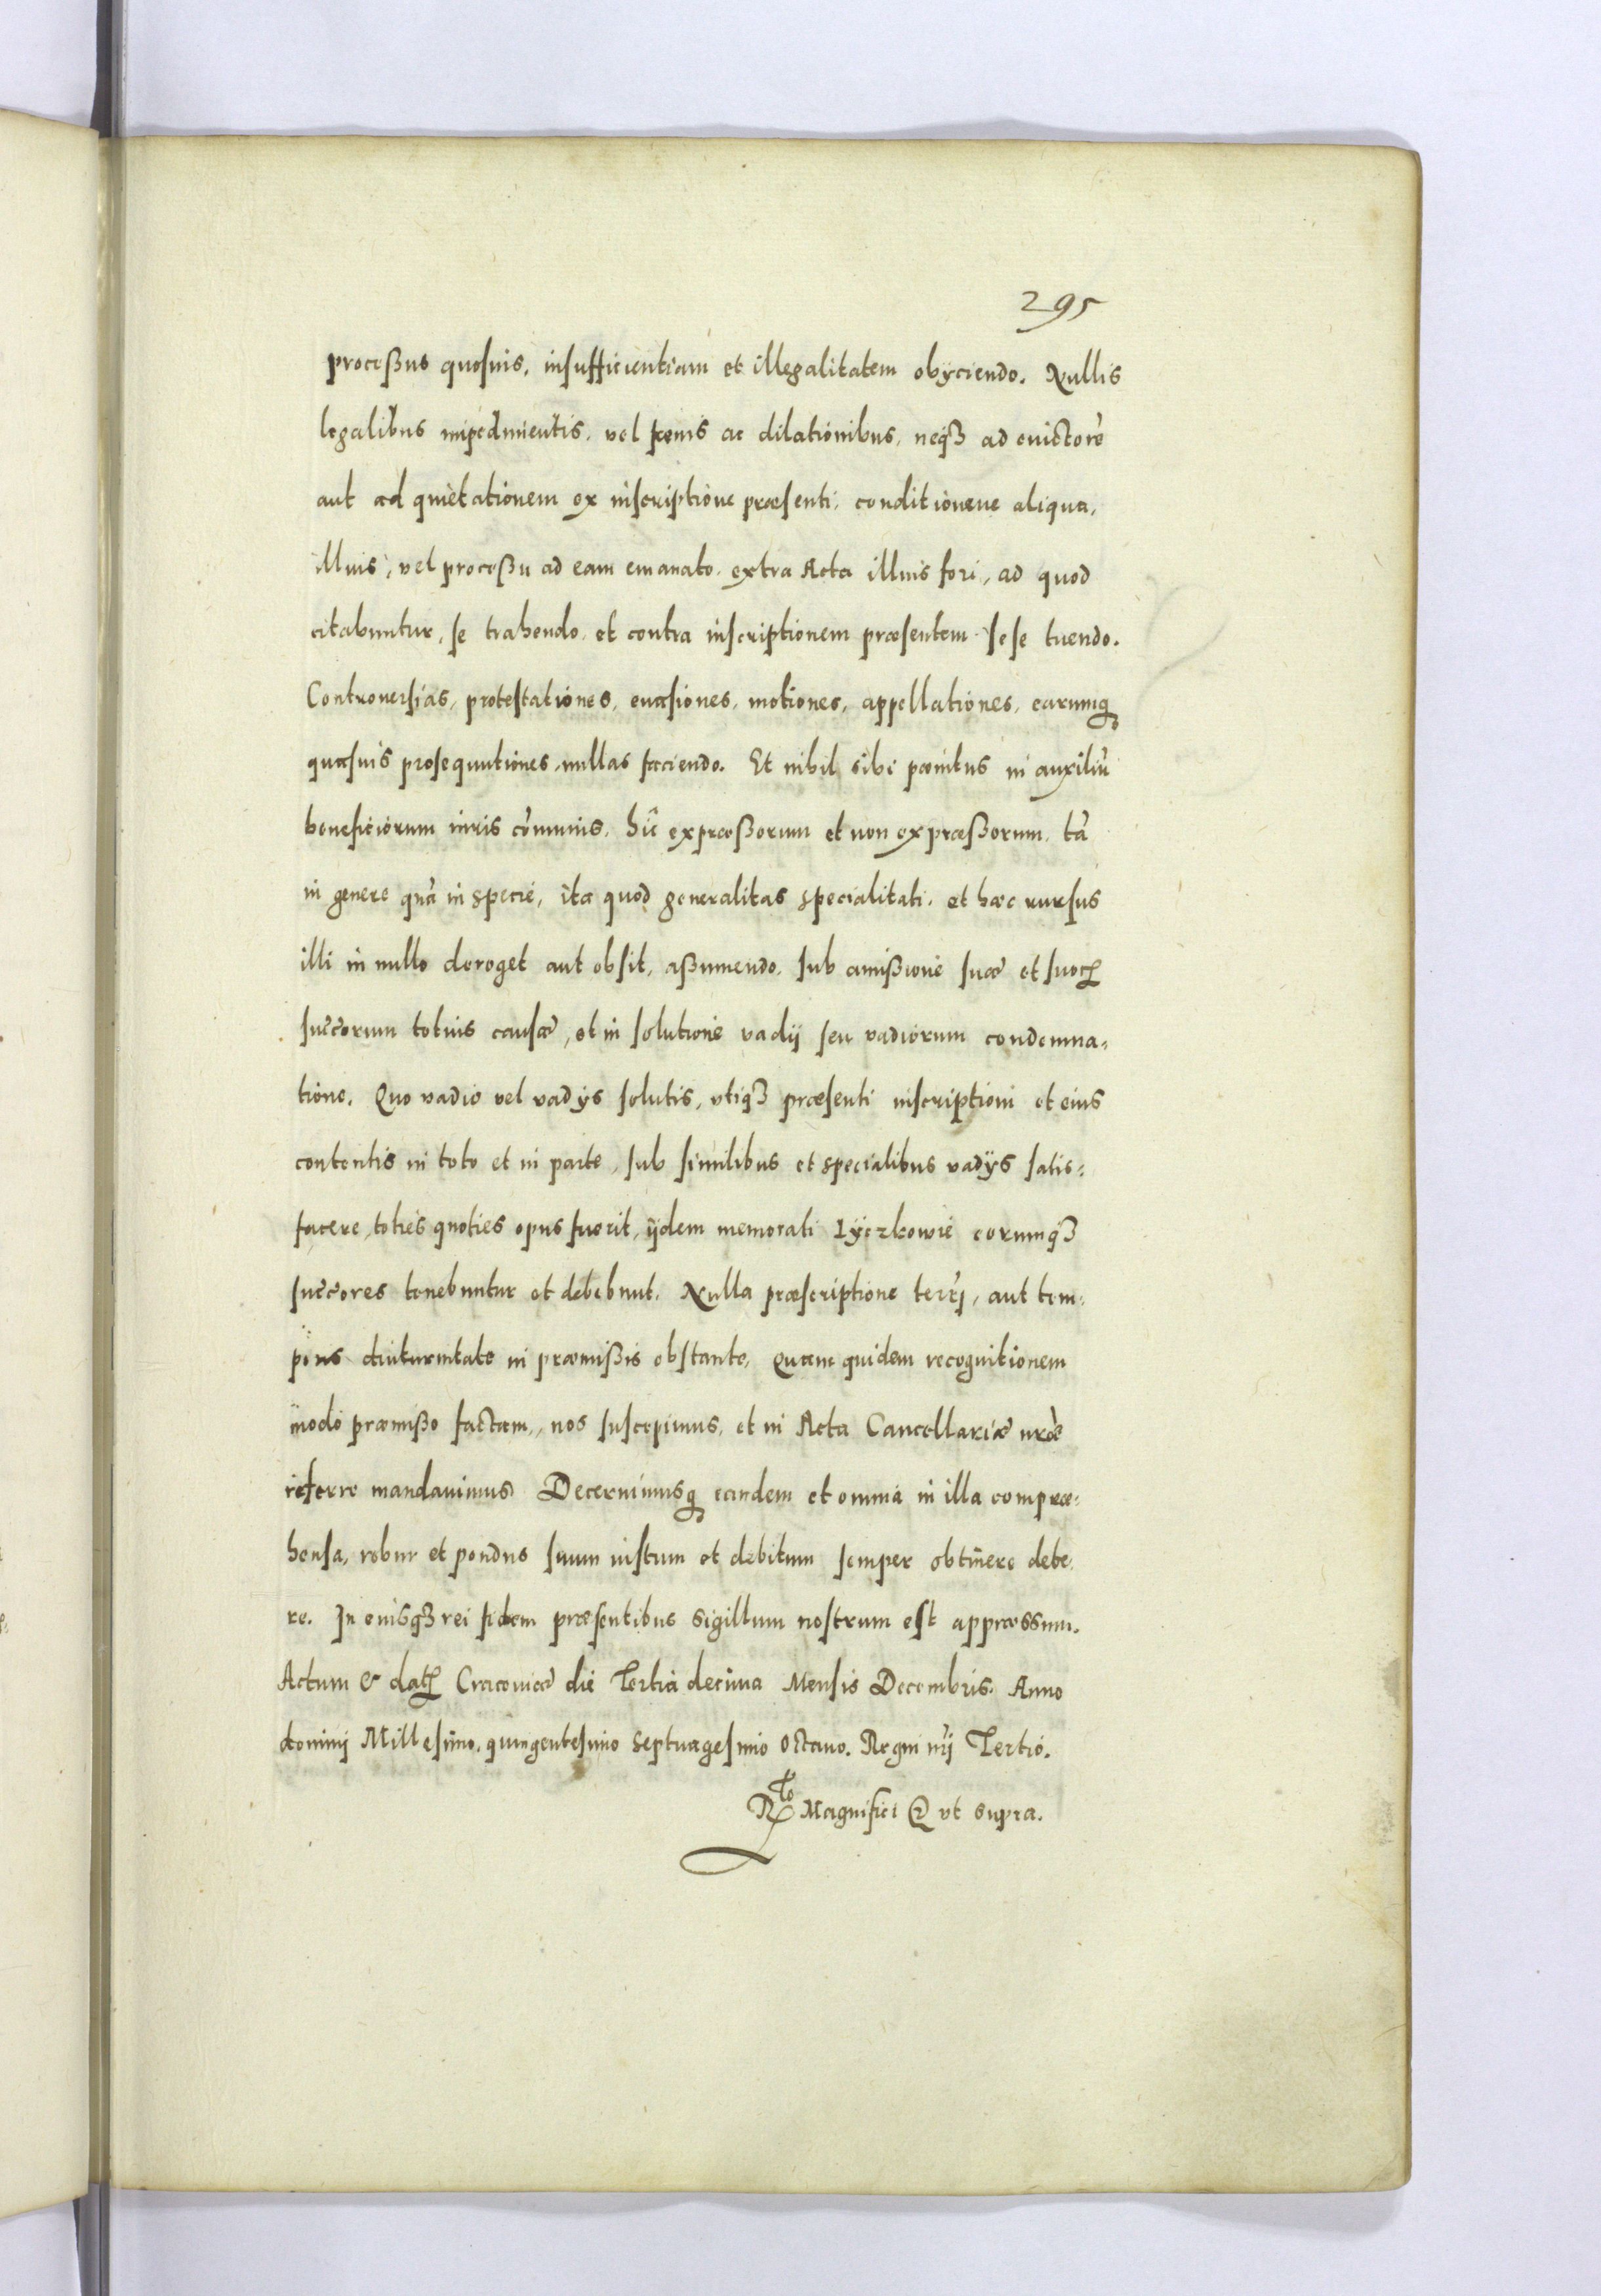 295
proceßus quosuis, insufficientiam et illegalitatem obÿciendo. Nullis
legalibus impedimentis, vel ac dilationibus, neqȝ ad euictorē
aut ad quietationem ex inscriptione præsenti, conditioneue aliqua,
illius, vel proceßu ad eam emanato, extra Acta illius fori, ad quod
citabuntur, se trahendo, et contra inscriptionem præsentem sese tuendo.
Controuersias, protestationes, euasiones, motiones, appellationes, earumqȝ
quasuis prosequutiones, nullas faciendo. Et nihil sibi pænitus in auxiliū
beneficiorum iuris cōmunis, hic expræßorum et non expræßorum, tā
in genere quā in specie, ita quod generalitas specialitati, et hæc rursus
illi in nullo deroget aut obsit, aßumendo, sub amißione suæ et suoꝝ
succ̄orum totius causæ, et in solutione vadij seu vadiorum condemna-
tione. Quo vadio vel vadÿs solutis, vtiqȝ præsenti inscriptioni et eius
contentis in toto et in parte, sub similibus et specialibus vadÿs satis-
facere, toties quoties opus fuerit, ÿdem memorati Lÿczkowie eorumqȝ
succ̄ores tenebuntur et debebunt. Nulla præscriptione terrī, aut tem-
poris diuturnitate in præmißis obstante, Quam quidem recognitionem
modo præmißo factam, nos suscepimus, et in Acta Cancellariæ nr̄æ
referre mandauimus Decernimusqȝ eandem et omnia in illa compræ-
hensa, robur et pondus suum iustum et debitum semper obtinere debe-
re. In cuiusqȝ rei fidem præsentibus Sigillum nostrum est appræssum.
Actum & datꝭ Cracouiæ die Tertia decima Mensis Decembris. Anno
domini Millesimo, quingentesimo Septuagesimo Octauo. Regni nr̄i Tertio.
R^to Magnifici & vt supra.